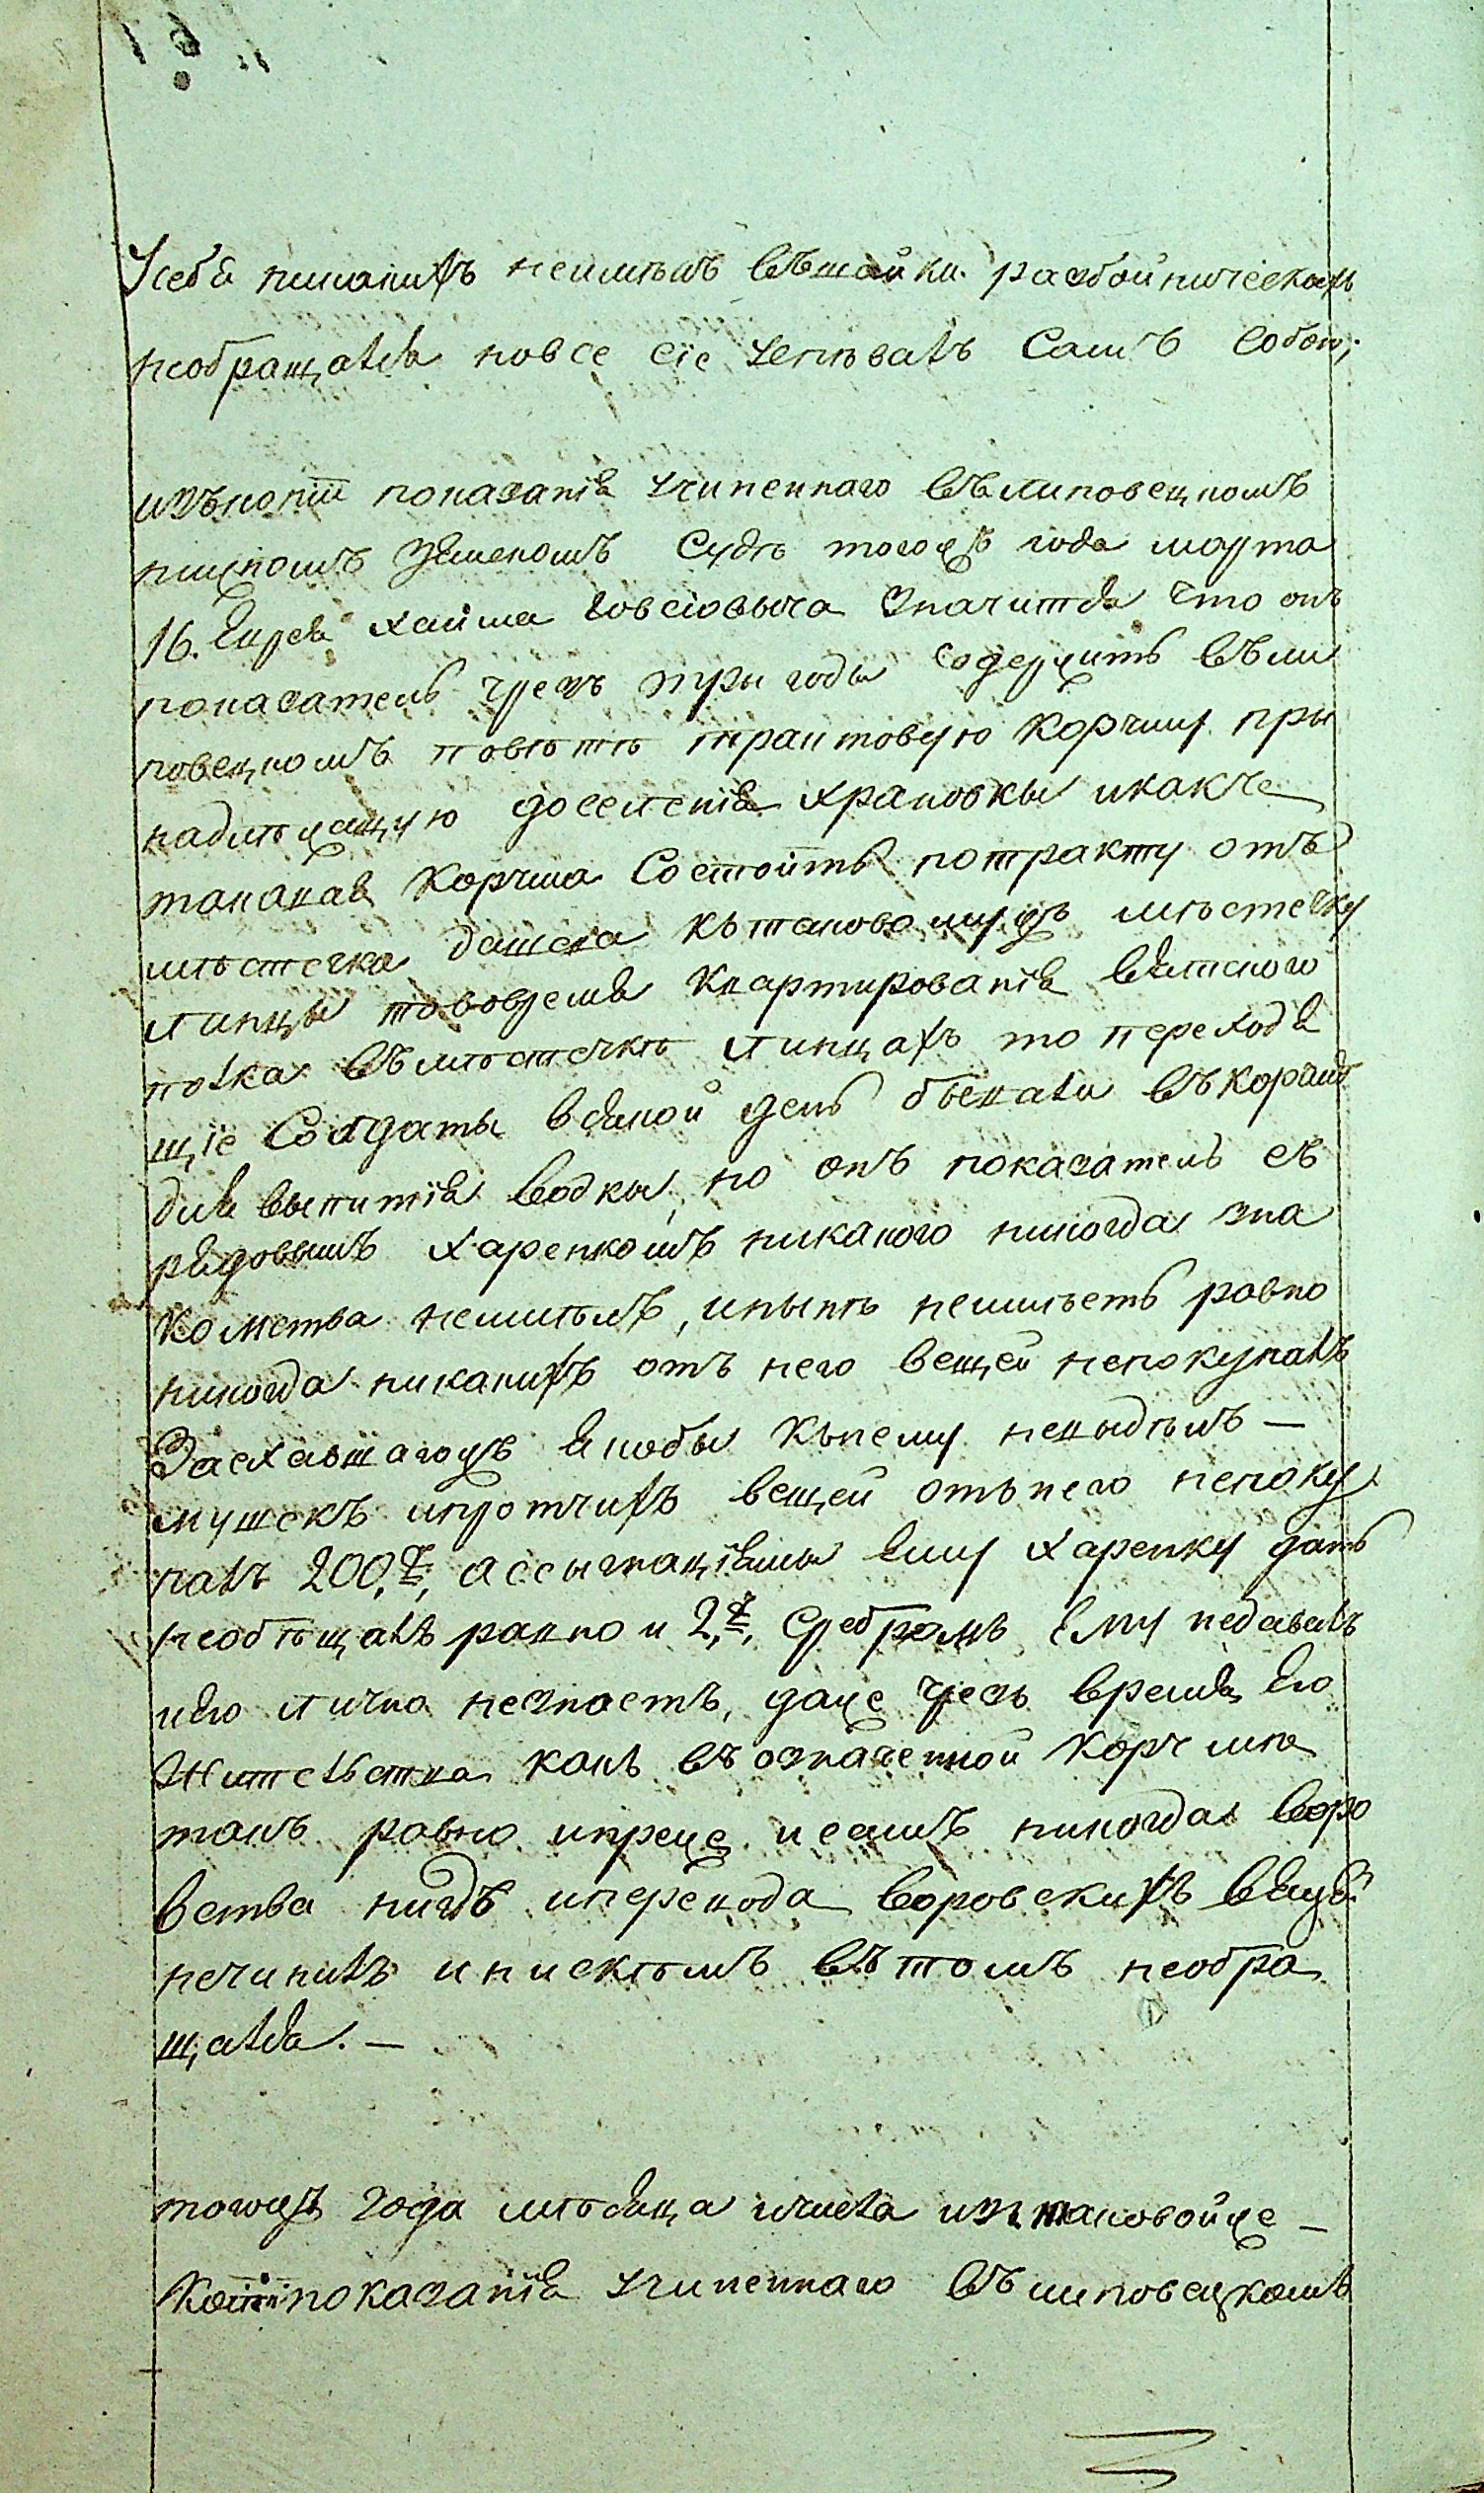 Усебя никакихъ неимелъ въшайки разбойническихъ
необращался новсе сіе успевалъ Самъ Собою;
изъкопіи показанія учиненнаго вълиповецкомъ
нижномъ земскомъ Суде тогожъ года марта
16. Еврея хайма Іовсіовыча Значится что онъ
показатель чрезъ тры годы содержитъ въли
повецкомъ повете трактовую Корчму пры
надлежащую доселенія храповкы икакже
таковая Корчма Состоитъ потракту отъ
местечка дашева къ таковомужъ местечку
липцы тововрема Квартированія Вятского
полка въместечке липцахъ то переходя
щіе Солдаты всякой день бежали въкорчму
для выпитія водкы, но онъ показатель съ
рядовымъ харенкомъ никакого никогда зна
комства неимелъ, иныне неимеетъ равно
никогда никакихъ отъ него вещей непокупалъ
Заехавшагожъ якобы къ нему невыделъ —
мушекъ ипротчихъ вещей отънего непоку
палъ 200,р, ассыгнаціямы Ему харенку дать
необещалъ равно и 2,р, Сребромъ Ему недавалъ
иего лично незнаетъ, даже чрезъ время Его
Жительства какъ въозначенной Корчме
такъ равно ипреже исамъ никогда воро
вства нигдъ иперевода воровскихъ вещей
нечинилъ инискемъ вътомъ необра
щался. —
тогожъ года месяца ичисла изътаковойже —
Копіи показанія учиненнаго въ липовецкомъ